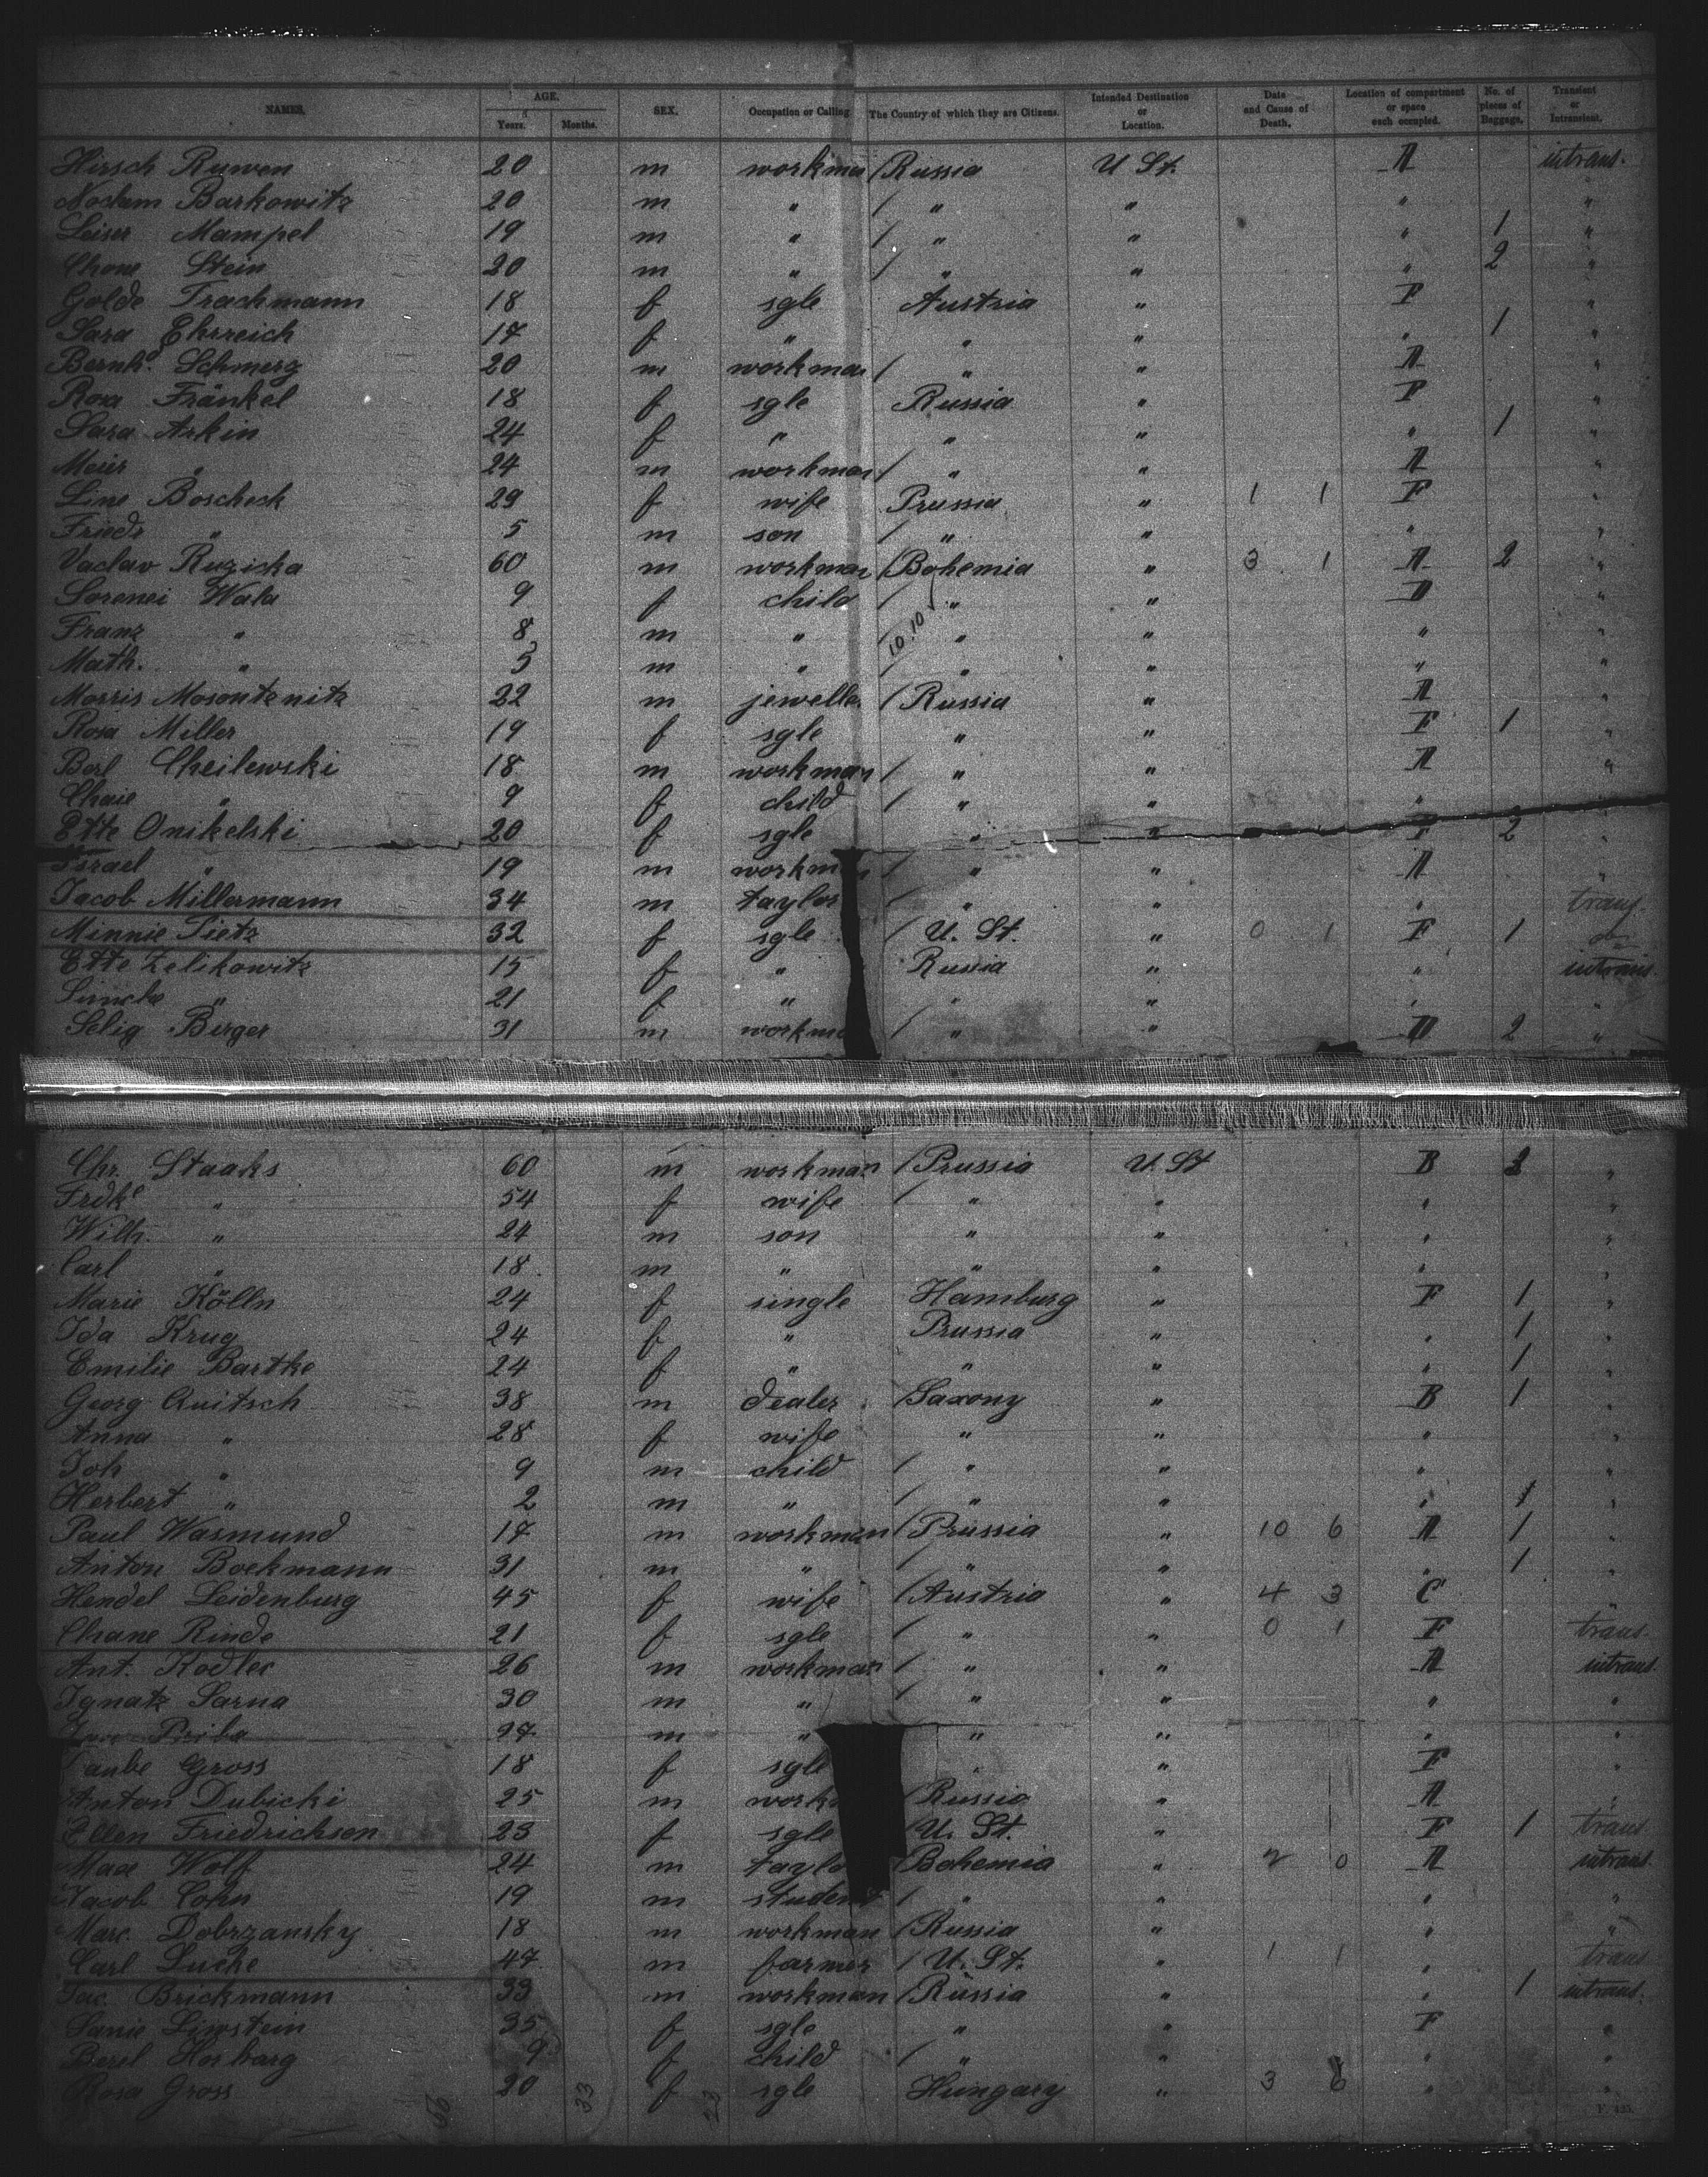 NAMES. AGE. Years. Months. SEX. Occupation or Calling The Country of which they are Citizens. Intended Destination or Location. Date and Cause of Death. Location of compartment or space each occupied. No. of pieces of Baggage. Transient or Intransient.
Hirsch Ruwen 20 m workman / Russia U St. A intrans.
Nochem Barkowitz 20 m " / " " " "
Leiser Mampel 19 m " / " " " 1 "
Chone Stein 20 m " / " " " 2 "
Golde Trachmann 18 f sgle Austria " F "
Sara Ehrreich 17 f " " " " 1 "
Bernhd. Schmerg 20 m workman / " " A "
Rosa Fränkel 18 f sgle Russia " F "
Sara Arkin 24 f " " " " 1 "
Meier " 24 m workman / " " A "
Line Boscheck 29 f wife Prussia " 1 1 F "
Friedr " 5 m son / " " " "
Vaclav Ruzicka 60 m workman / Bohemia " 3 1 A 2 "
Wala 9 f child / " " "
Franz " 8 m " / " " " "
Math. " 5 m " / " " " "
10.10
Morris Mosontznitz 22 m jeweller / Russia " A "
Rosa Miller 19 f sgle " " F 1 "
Berl Cheilewski 18 m workman / " " A "
Chaie " 9 f child / " " "
Ette Onikelski 20 f sgle " " F 2 "
Israel " 19 m workman / " " A "
Jacob Millermann 34 m taylor / " " " trans.
Minnie Tietz 32 f sgle / U. St. " 0 1 F 1
Ette Zelikowitz 15 f " Russia " " intrans.
" 21 f " " " " "
Selig Berger 31 m workman / " " A 2 "
Chr. Staaks 60 m workman / Prussia U. St B "
Frdke " 54 f wife / " " " "
Wilh. " 24 m son " " " "
Carl " 18 m " " " " "
Marie Kölln 24 f single Hamburg " F 1 "
Ida Krug 24 f " Prussia " 1 "
Emilie Bartke 24 f " " " " 1 "
Georg Quitsch 38 m dealer / Saxony " B 1 "
Anna " 28 f wife " " " "
Joh " 9 m child / " " " "
Herbert " 2 m " / " " " 1 "
Paul Wasmund 17 m workman / Prussia " 10 6 A 1 "
Anton Boekmann 31 m " / " " " 1 "
Hendel Leidenburg 45 f wife / Austria " 4 3 C "
Chane Rinde 21 f sgle / " " 0 1 F trans.
Ant. Kodler 26 m workman / " " A intrans.
Ignatz Sarna 30 m " / " " " "
Priba 27 m " " " " "
Taube Gross 18 f sgle " F "
Anton Dubicki 25 m / Russia " A "
Ellen Friedrichsen 23 f sgle / U. St. " F 1 trans
Max Wolf 24 m Bohemia " 2 0 A intrans.
Jacob Cohn 19 m student / " " " "
Marc. Dobrzansky 18 m workman / Russia " " "
Carl Lucke 47 m farmer / U. St. " 1 1 " trans
Jac. Brickmann 33 m workman / Russia " " 1 intrans.
Sanie Liwstein 35 f sgle " " F "
Berel 9 f child / " " " "
Rosa Gross 20 f sgle Hungary " 3 6 " "
56 33 23